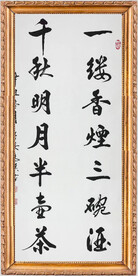 一缕香煙三碗酒
千秋明月半壺茶